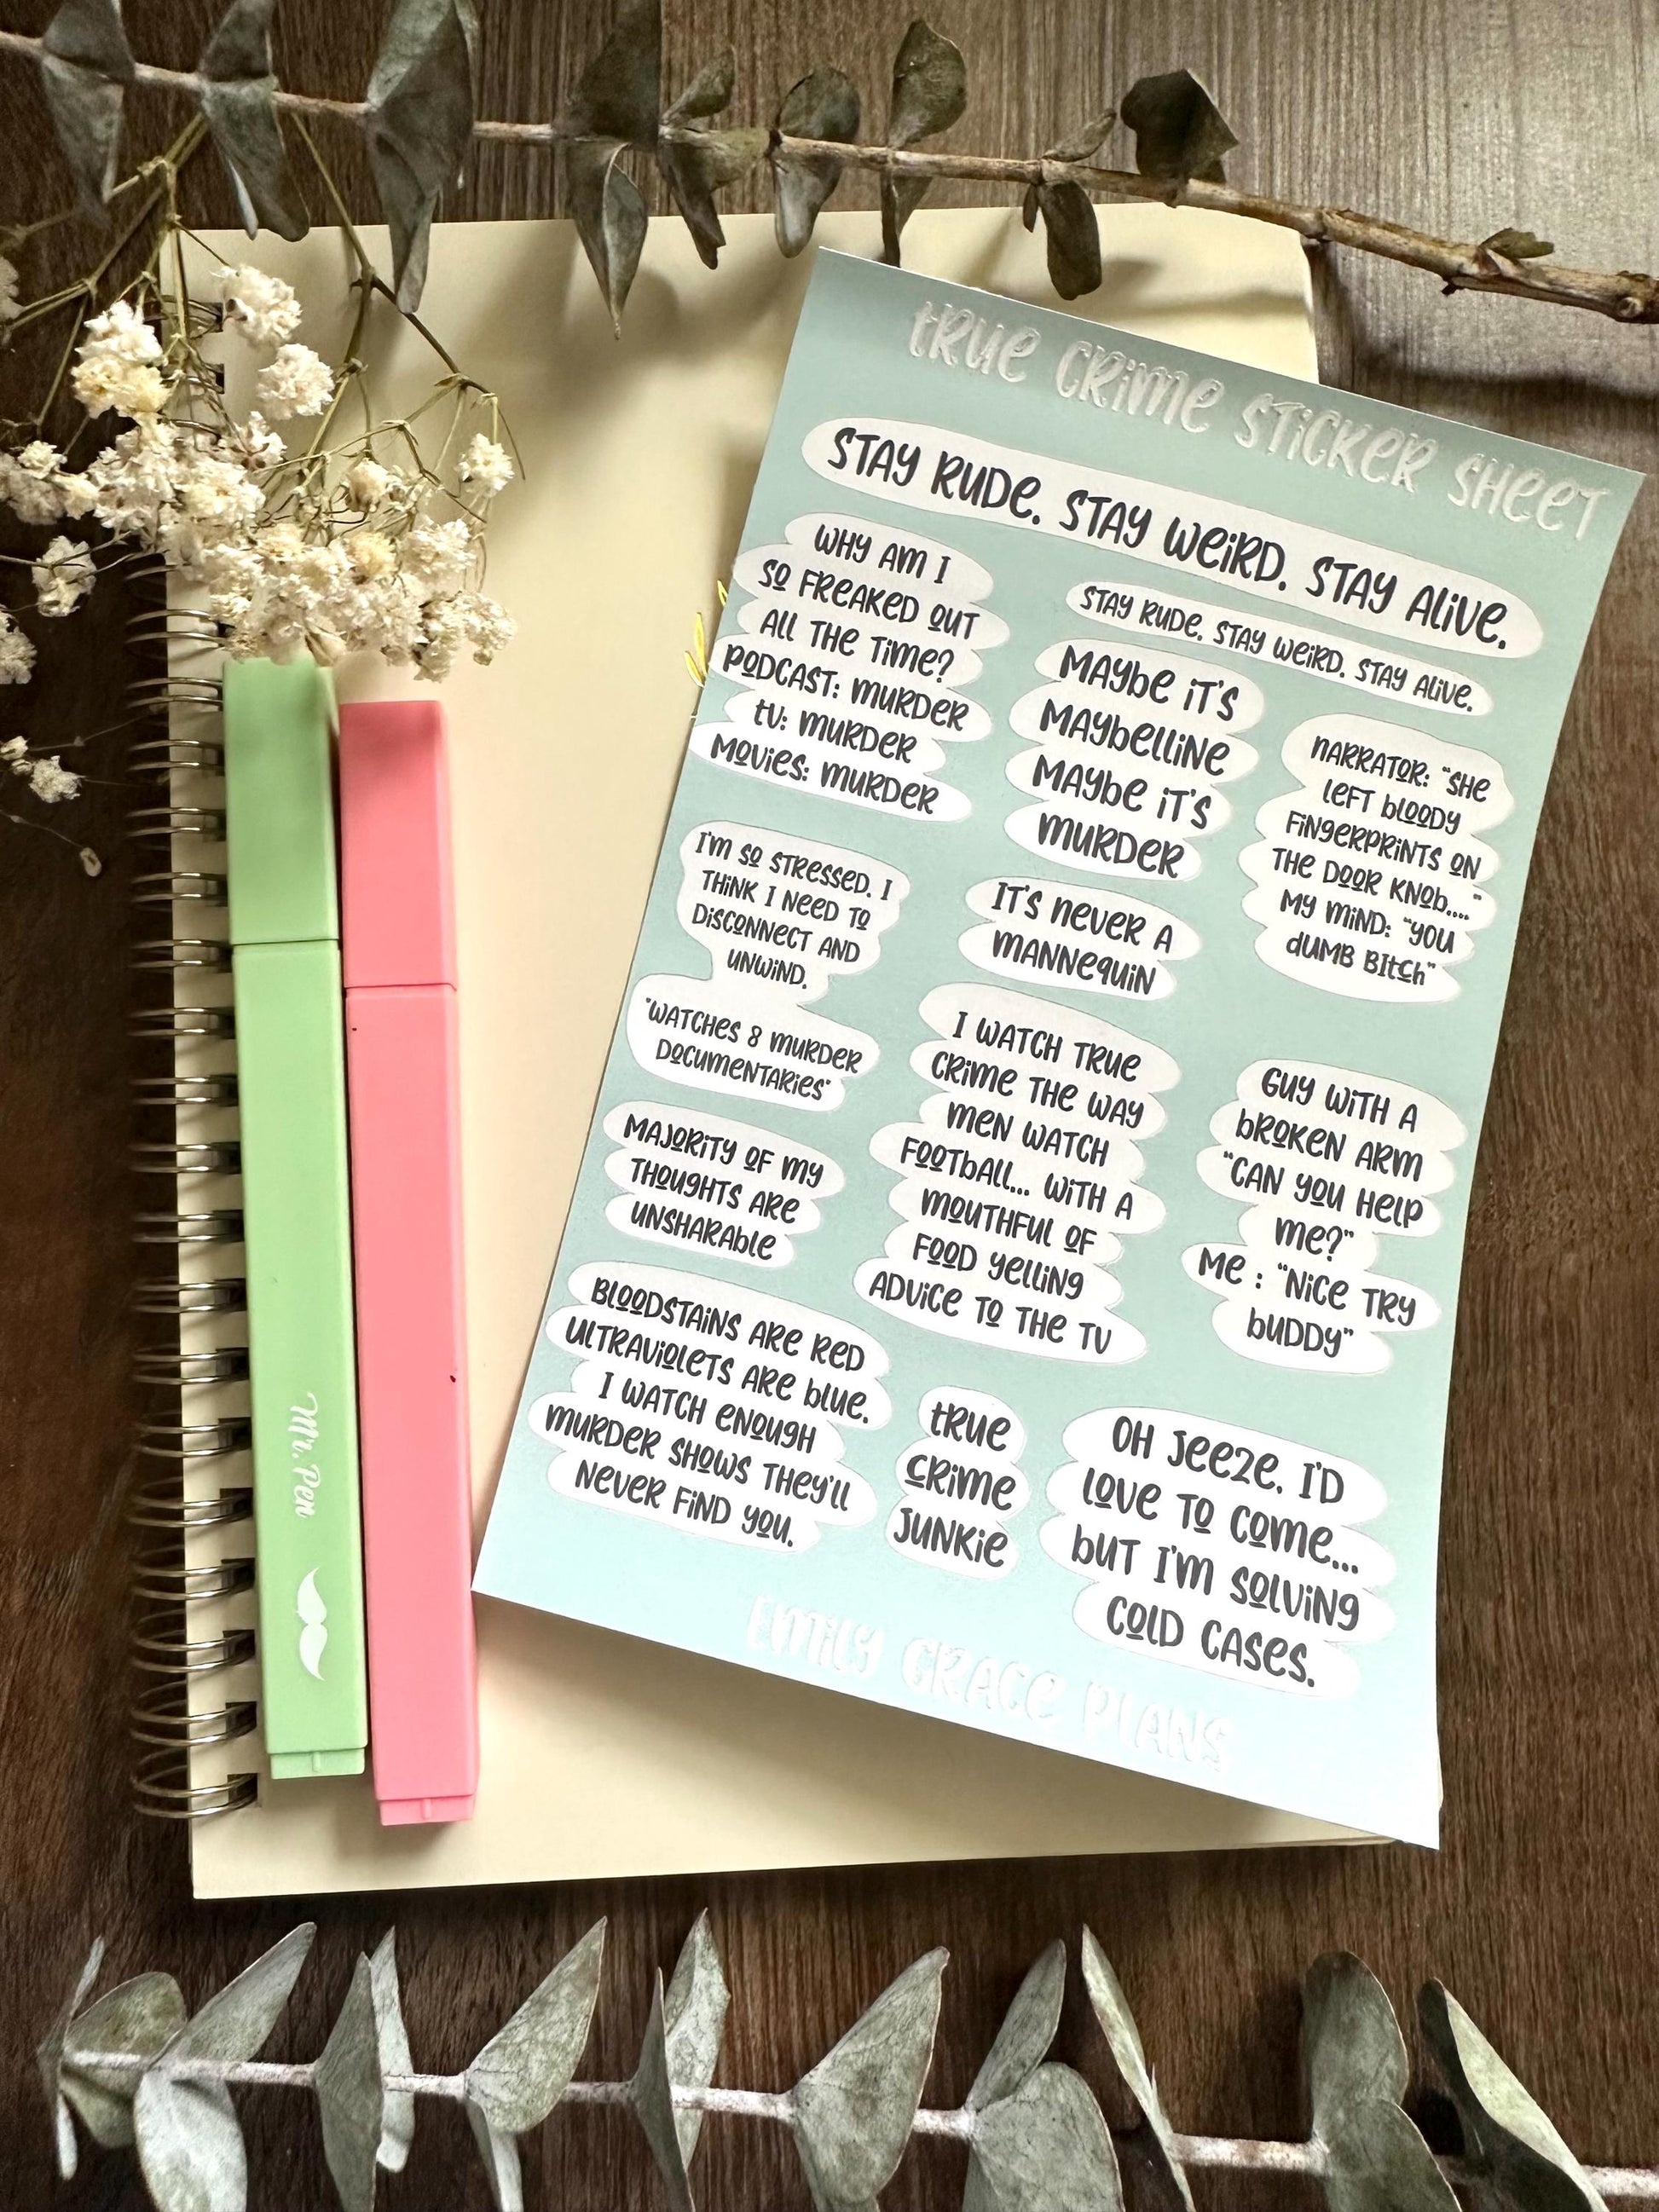 TRUE CRIME STICKER SHEET
STAY RUDE. STAY WEIRD. STAY ALIVE.
WHY AM I
SO FREAKED OUT
ALL THE TIME?
PODCAST: MURDER
TV: MURDER
MOVIES: MURDER
STAY RUDE. STAY WEIRD. STAY ALIVE.
MAYBE IT'S
MAYBELLINE
MAYBE IT'S
MURDER
NARRATOR: "SHE
LEFT BLOODY
FINGERPRINTS ON
THE DOOR KNOB...."
MY MIND: "YOU
DUMB BITCH"
I'M SO STRESSED. I
THINK I NEED TO
DISCONNECT AND
UNWIND.
"WATCHES 8 MURDER
DOCUMENTARIES"
IT'S NEVER A
MANNEQUIN
I WATCH TRUE
CRIME THE WAY
MEN WATCH
FOOTBALL... WITH A
MOUTHFUL OF
FOOD YELLING
ADVICE TO THE TV
GUY WITH A
BROKEN ARM
"CAN YOU HELP
ME?"
ME : "NICE TRY
BUDDY"
MAJORITY OF MY
THOUGHTS ARE
UNSHARABLE
BLOODSTAINS ARE RED
ULTRAVIOLETS ARE BLUE.
I WATCH ENOUGH
MURDER SHOWS THEY'LL
NEVER FIND YOU.
TRUE
CRIME
JUNKIE
OH JEEZE. I'D
LOVE TO COME...
BUT I'M SOLVING
COLD CASES.
EMILY GRACE PLANS
Mr. Pen